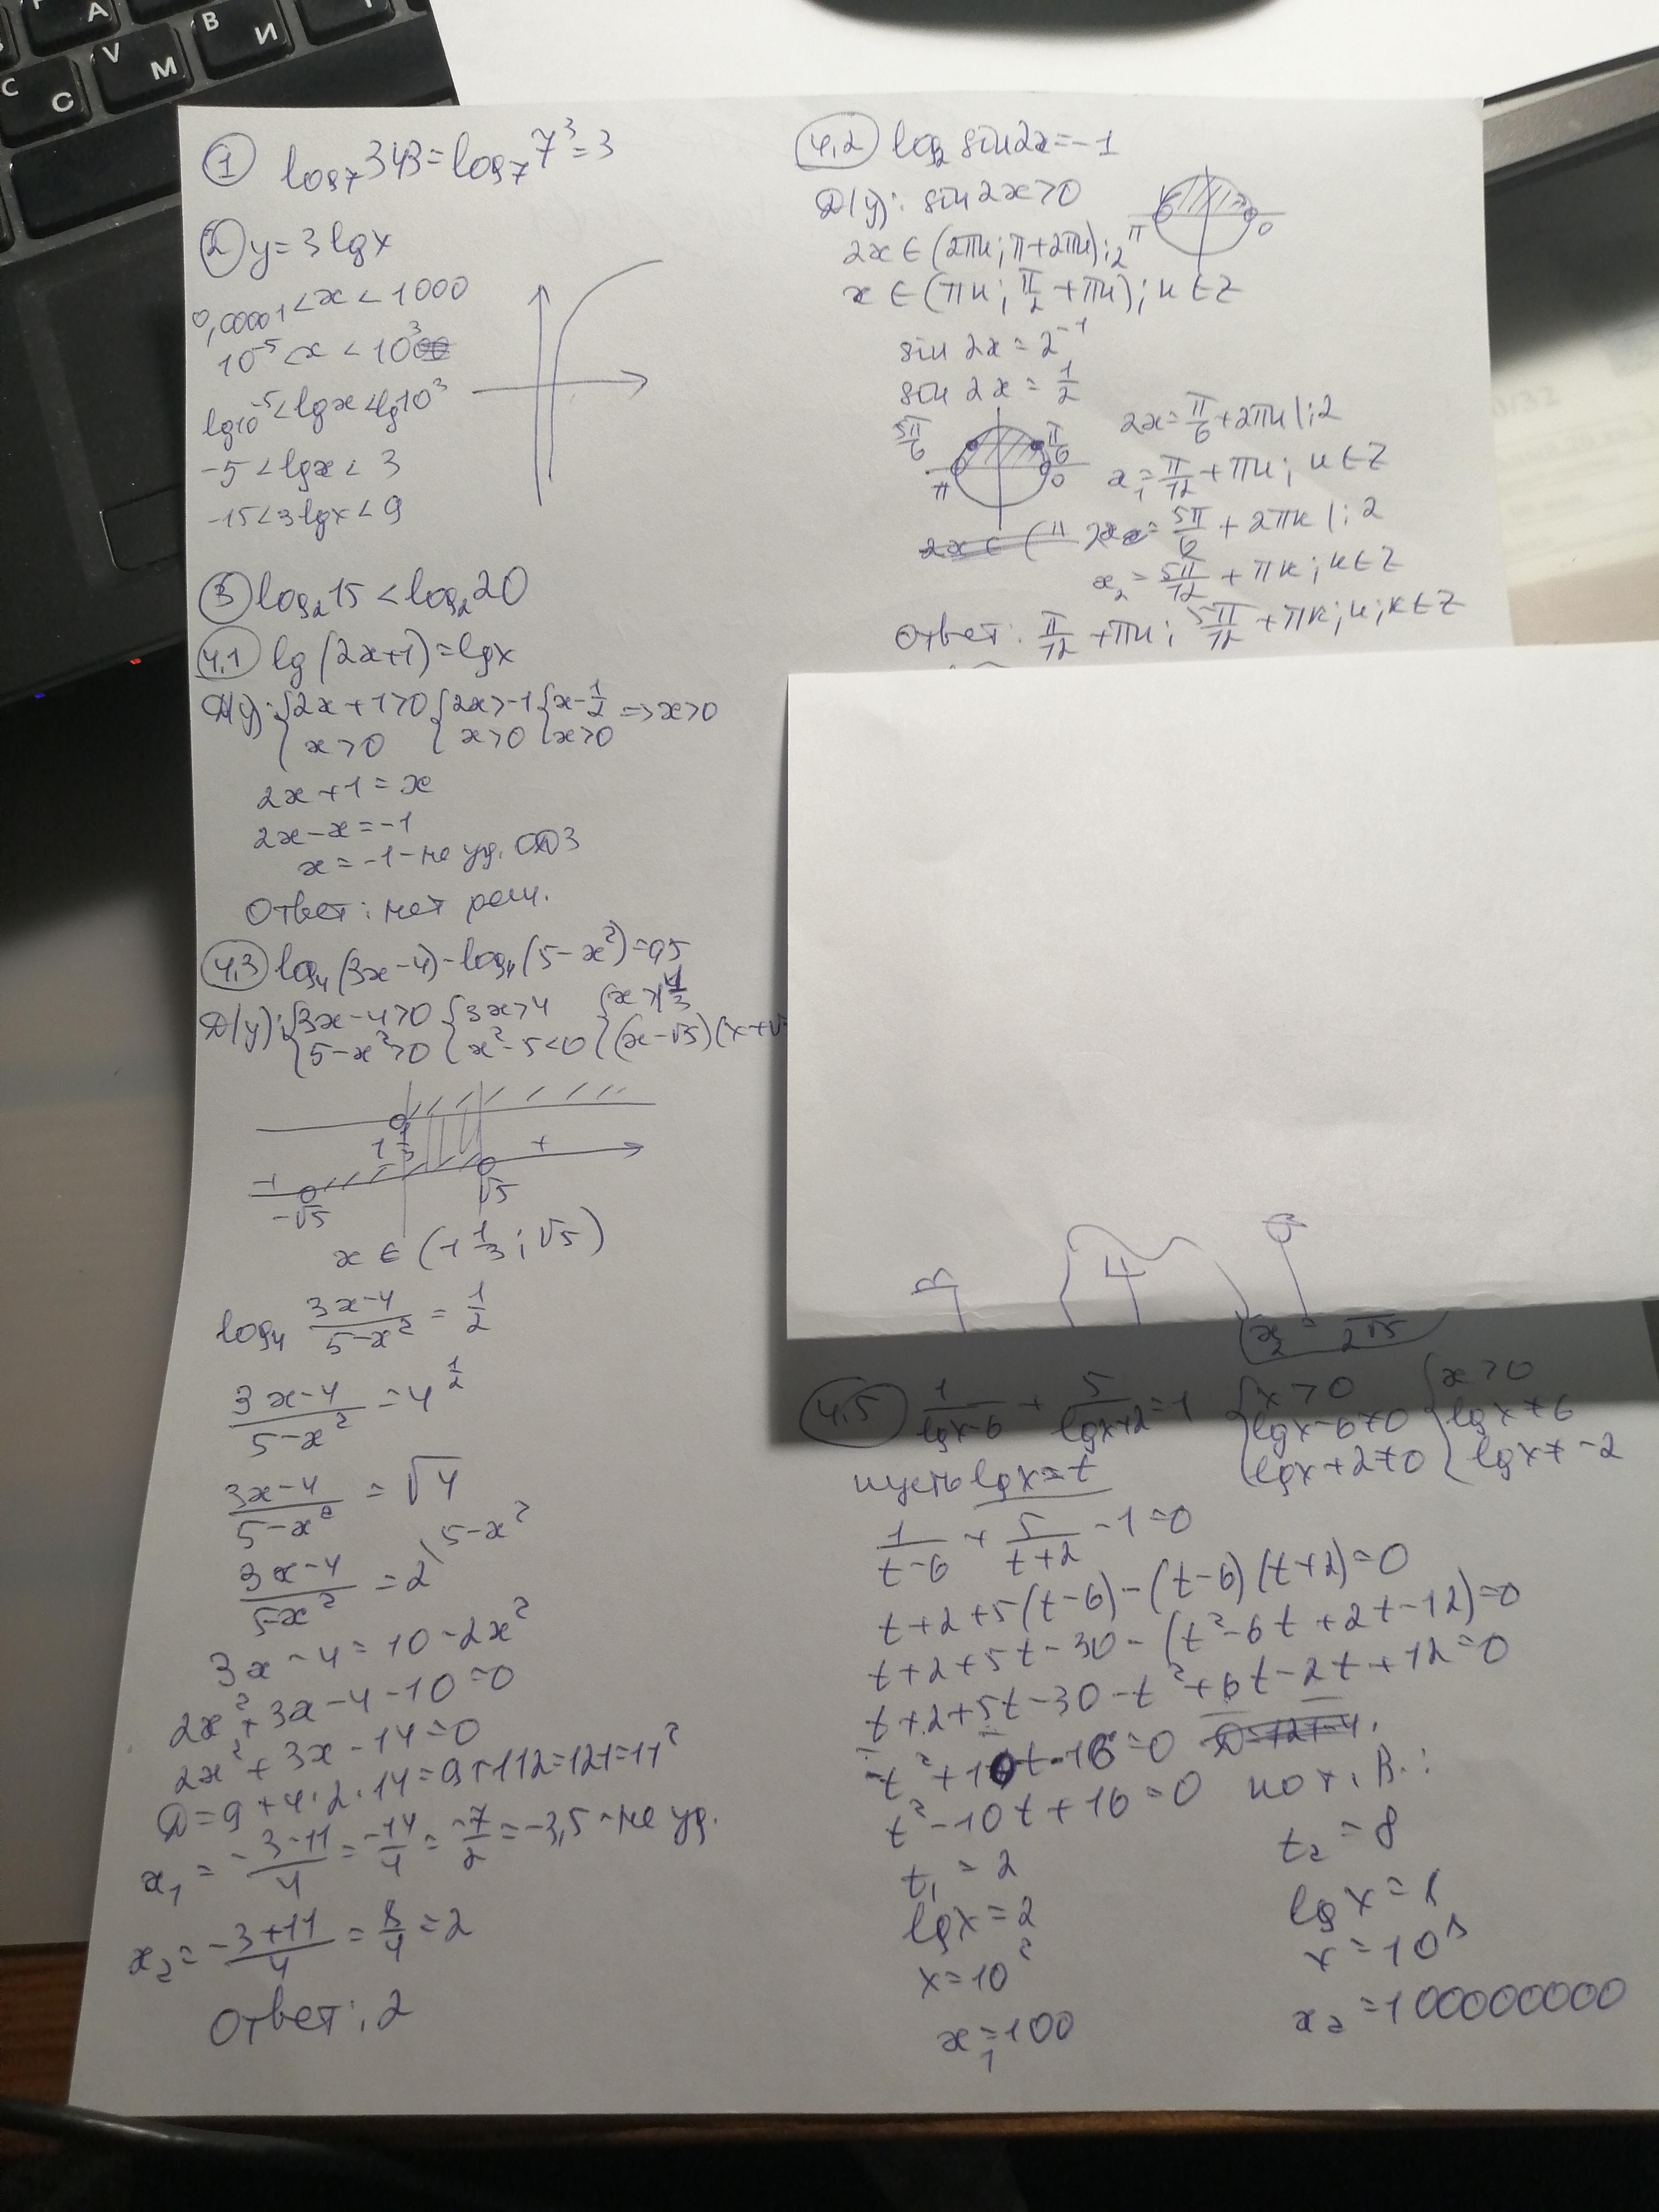 А
В
И
V
М
С
С
① log₇343=log₇7³=3
② y=3lgx
0,00001<x<1000
10⁻⁵<x<10³
lg10⁻⁵<lgx<lg10³
-5<lgx<3
-15<3lgx<9
③ log₂15<log₂20
4,1 lg(2x+1)=lgx
D(y): {2x+1>0 {2x>-1 {x-1/2 =>x>0
{x>0 {x>0 {x>0
2x+1=x
2x-x=-1
x=-1-не уд. ОДЗ
Ответ: нет реш.
4,3 log₄(3x-4)-log₄(5-x²)=0,5
D(y): {3x-4>0 {3x>4 {x>1 1/3
{5-x²>0 {x²-5<0 {(x-√5)(x+√
1 1/3
+ +
-√5 √5
x∈(1 1/3; √5)
log₄ (3x-4)/(5-x²) = 1/2
(3x-4)/(5-x²) = 4^(1/2)
(3x-4)/(5-x²) = √4
(3x-4)/(5-x²) = 2 \ 5-x²
3x-4=10-2x²
2x²+3x-4-10=0
2x²+3x-14=0
D=9+4·2·14=9+112=121=11²
x₁= (-3-11)/4 = -14/4 = -7/2 = -3,5-не уд.
x₂= (-3+11)/4 = 8/4 = 2
Ответ: 2
4,2 log₂ sin2x=-1
D(y): sin2x>0
π 0
2x∈(2πn; π+2πn) :2
x∈(πn; π/2+πn); n∈Z
sin 2x=2⁻¹
sin 2x=1/2
5π/6 π/6
π 0
2x=π/6+2πn |:2
x₁=π/12+πn; n∈Z
2x=5π/6+2πк |:2
x₂=5π/12+πк; к∈Z
Ответ: π/12+πn; 5π/12+πк; n; к∈Z
4
x₂= 2√5
4,5 1/(lgx-6) + 5/(lgx+2) =1 {x>0 {x>0
{lgx-6≠0 {lgx≠6
{lgx+2≠0 {lgx≠-2
пусть lgx=t
1/(t-6) + 5/(t+2) -1=0
t+2+5(t-6)-(t-6)(t+2)=0
t+2+5t-30-(t²-6t+2t-12)=0
t+2+5t-30-t²+6t-2t+12=0
-t²+10t-16=0
t²-10t+16=0 по т. В.:
t₁=2 t₂=8
lgx=2 lgx=8
x=10² x=10⁸
x₁=100 x₂=100000000